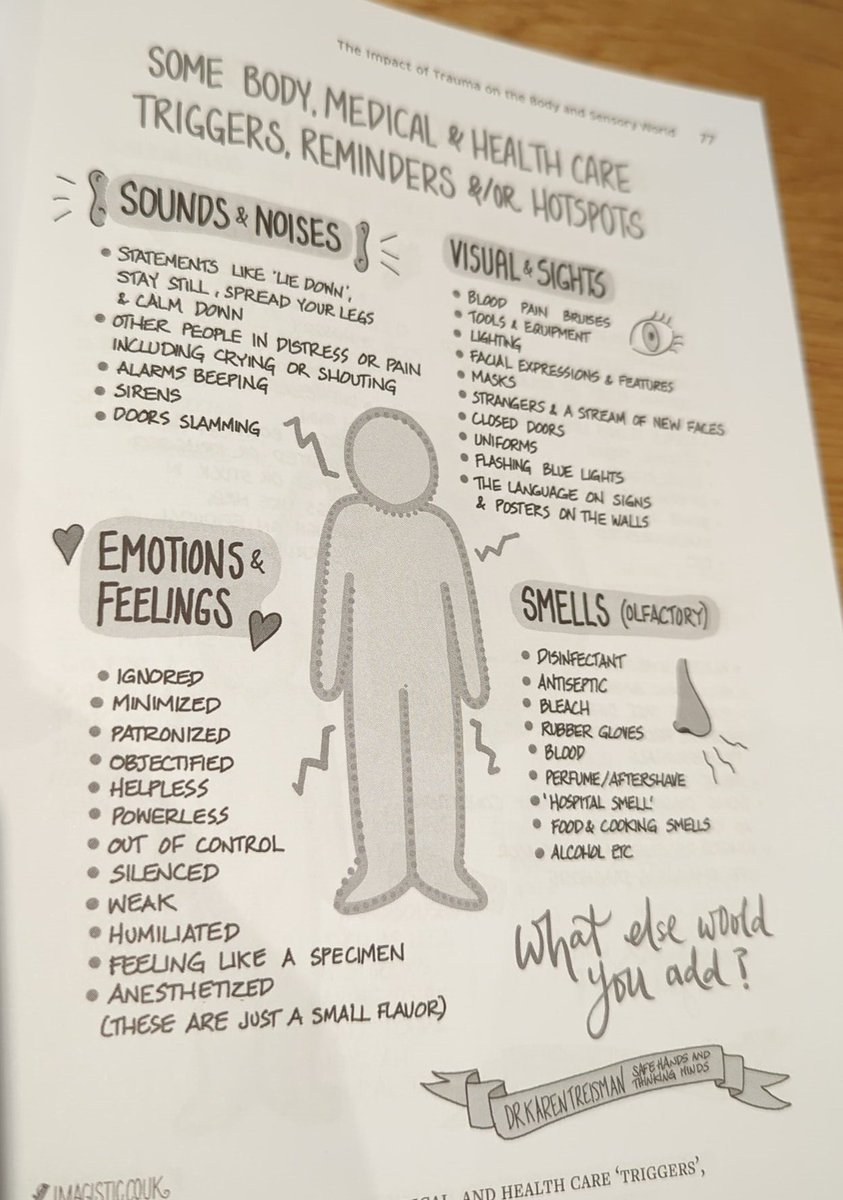 The Impact of Trauma on the Body and Sensory World 77
SOME BODY, MEDICAL & HEALTH CARE
TRIGGERS, REMINDERS &/OR HOTSPOTS
SOUNDS & NOISES
• STATEMENTS LIKE 'LIE DOWN',
STAY STILL, SPREAD YOUR LEGS
& CALM DOWN
• OTHER PEOPLE IN DISTRESS OR PAIN
INCLUDING CRYING OR SHOUTING
• ALARMS BEEPING
• SIRENS
• DOORS SLAMMING
VISUAL & SIGHTS
• BLOOD PAIN BRUISES
• TOOLS & EQUIPMENT
• LIGHTING
• FACIAL EXPRESSIONS & FEATURES
• MASKS
• STRANGERS & A STREAM OF NEW FACES
• CLOSED DOORS
• UNIFORMS
• FLASHING BLUE LIGHTS
• THE LANGUAGE ON SIGNS
& POSTERS ON THE WALLS
EMOTIONS &
FEELINGS
• IGNORED
• MINIMIZED
• PATRONIZED
• OBJECTIFIED
• HELPLESS
• POWERLESS
• OUT OF CONTROL
• SILENCED
• WEAK
• HUMILIATED
• FEELING LIKE A SPECIMEN
• ANESTHETIZED
(THESE ARE JUST A SMALL FLAVOR)
SMELLS (OLFACTORY)
• DISINFECTANT
• ANTISEPTIC
• BLEACH
• RUBBER GLOVES
• BLOOD
• PERFUME/AFTERSHAVE
• 'HOSPITAL SMELL'
• FOOD & COOKING SMELLS
• ALCOHOL ETC
What else would
you add?
DR KAREN TREISMAN
SAFE HANDS AND
THINKING MINDS
IMAGISTIC.CO.UK
AND HEALTH CARE 'TRIGGERS',